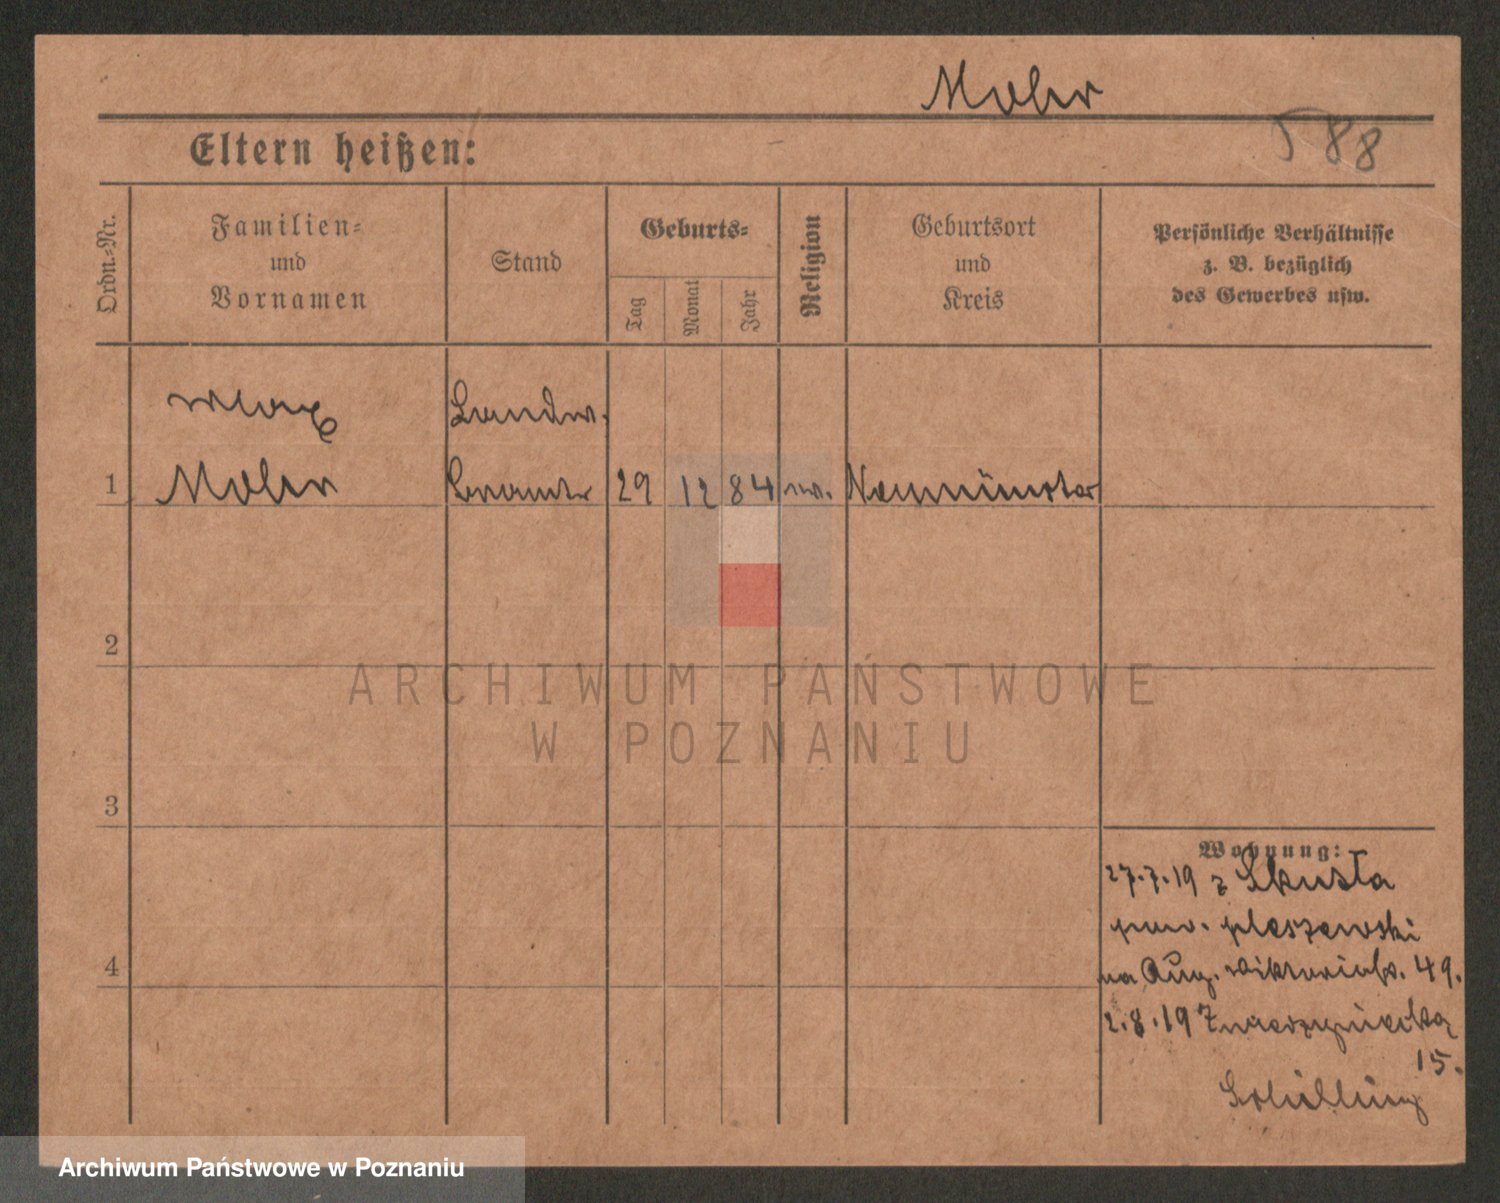 Mohr
588
Eltern heißen:
Ordn.-Nr.
Familien-
und
Vornamen
Stand
Geburts-
Tag
Monat
Jahr
Religion
Geburtsort
und
Kreis
Persönliche Verhältnisse
z. B. bezüglich
des Gewerbes usw.
Max
Landw.
1 Mohr Beamter 29 12 84 ew. Neumünster
2
3
4
Wohnung:
27.7.19 z
pow. pleszewski
na Aug. Viktoriastr. 49.
2.8.19
15.
Schilling
ARCHIWUM PAŃSTWOWE
W POZNANIU
Archiwum Państwowe w Poznaniu